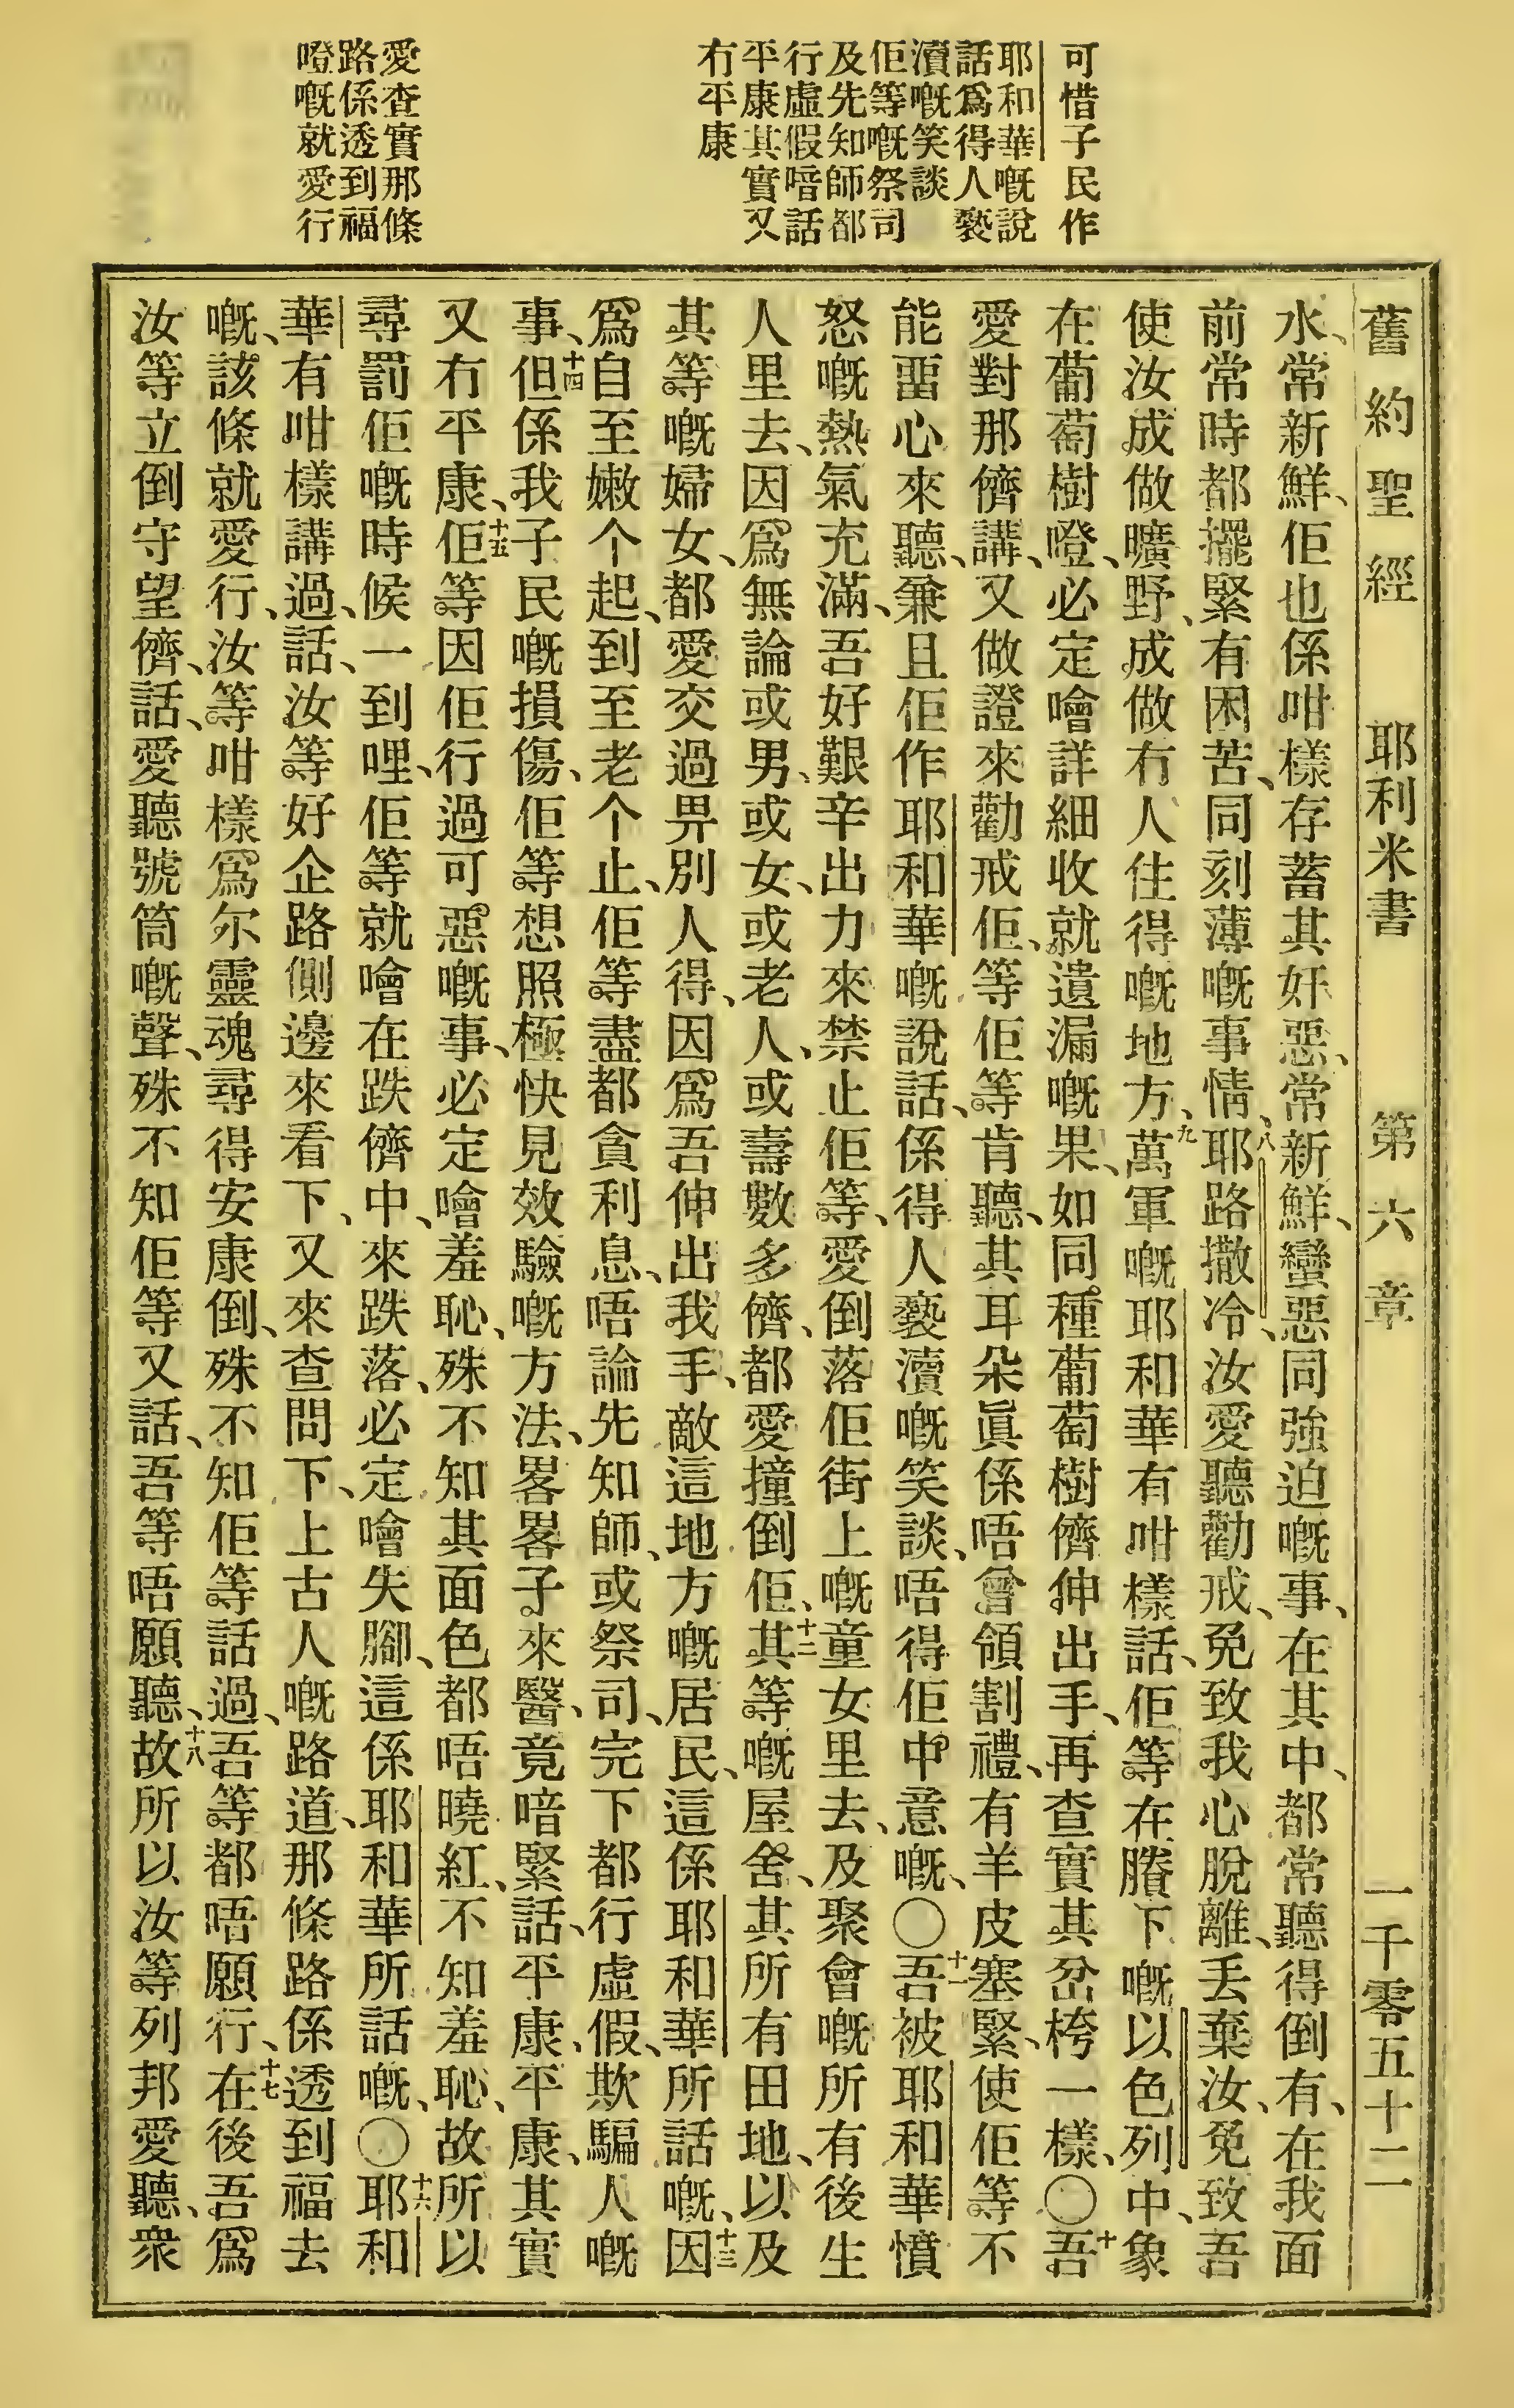 可惜子民作
耶和華嘅說
話爲得人褻
瀆嘅笑談
佢等嘅祭司
及先知師都
行虛假喑話
平康其實又
冇平康
愛查實那條
路係透到福
噔嘅就愛行
舊約聖經 耶利米書 第六章 一千零五十二
水、常新鮮、佢也係咁樣存蓄其奸惡、常新鮮、蠻惡同強迫嘅事、在其中、都常聽得倒有、在我面
前常時都擺緊有困苦、同刻薄嘅事情、八耶路撒冷、汝愛聽勸戒、免致我心脫離、丢棄汝、免致吾
使汝成做曠野、成做冇人住得嘅地方、九萬軍嘅耶和華有咁樣話、佢等在賸下嘅以色列中、象
在葡萄樹噔、必定噲詳細收就遺漏嘅果、如同種葡萄樹儕伸出手、再查實其岔桍一樣、〇十吾
愛對那儕講、又做證來勸戒佢、等佢等肯聽、其耳朵眞係唔曾領割禮、有羊皮塞緊、使佢等不
能畱心來聽、兼且佢作耶和華嘅說話、係得人褻瀆嘅笑談、唔得佢中意嘅、〇十一吾被耶和華憤
怒嘅熱氣充滿、吾好艱辛出力來禁止佢等、愛倒落佢街上嘅童女里去、及聚會嘅所有後生
人里去、因爲無論或男、或女、或老人、或壽數多儕、都愛撞倒佢、十二其等嘅屋舍、其所有田地、以及
其等嘅婦女、都愛交過畀別人得、因爲吾伸出我手、敵這地方嘅居民、這係耶和華所話嘅、十三因
爲自至嫩个起、到至老个止、佢等盡都貪利息、唔論先知師、或祭司、完下都行虛假、欺騙人嘅
事、十四但係我子民嘅損傷、佢等想照極快見效驗嘅方法、畧畧子來醫、竟喑緊話、平康、平康、其實
又冇平康、十五佢等因佢行過可惡嘅事、必定噲羞恥、殊不知其面色都唔曉紅、不知羞恥、故所以
尋罰佢嘅時候一到哩、佢等就噲在跌儕中、來跌落、必定噲失腳、這係耶和華所話嘅、〇十六耶和
華有咁樣講過、話、汝等好企路側邊來看下、又來查問下、上古人嘅路道、那條路係透到福去
嘅、該條就愛行、汝等咁樣爲尔靈魂尋得安康倒、殊不知佢等話過、吾等都唔願行、十七在後吾爲
汝等立倒守望儕、話、愛聽號筒嘅聲、殊不知佢等又話、吾等唔願聽、十八故所以汝等列邦愛聽、衆